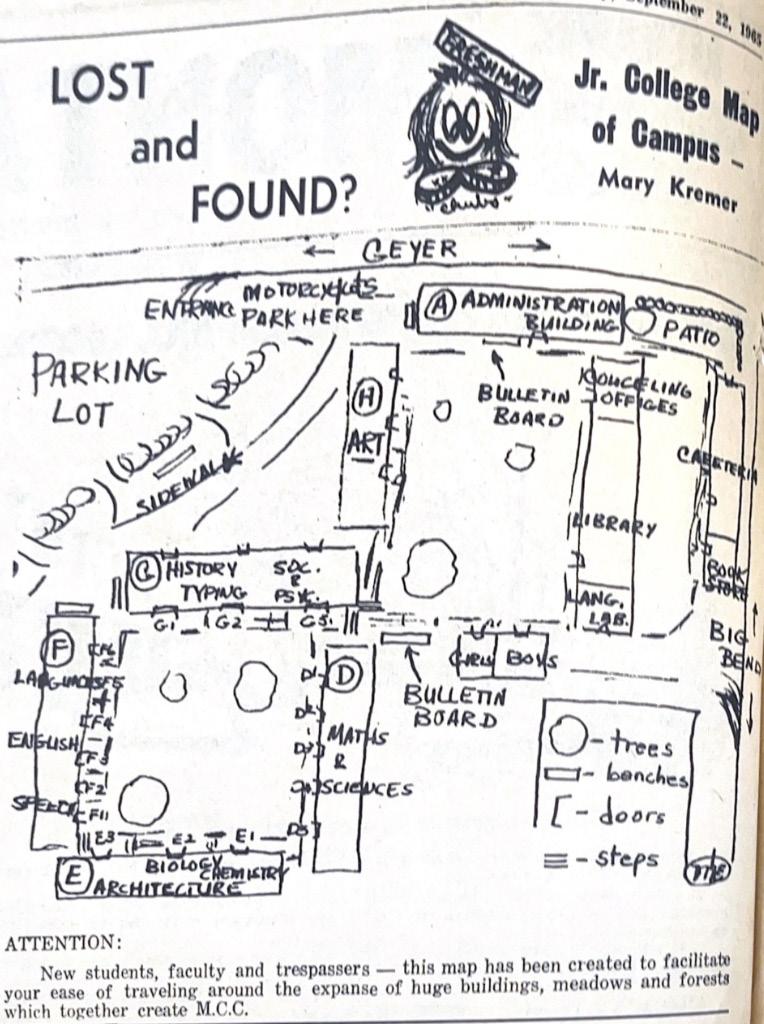 22, 1965
LOST
and
FOUND?
FRESHMAN
Jr. College Map
of Campus –
Mary Kremer
← GEYER →
ENTRANCE
MOTORCYCLES
PARK HERE
PARKING
LOT
SIDEWALK
A ADMINISTRATION
BUILDING
PATIO
H
ART
BULLETIN
BOARD
COUCELING
OFFICES
CAFETERIA
LIBRARY
LANG.
LAB.
BOOK
STORE
BIG
BEND
HISTORY
TYPING
SOC.
&
PSY.
G1
G2
G3
F
LANGUAGES
ENGLISH
SPEECH
F5
F4
F3
F2
F1
D
MATHS
&
SCIENCES
D5
BULLETIN
BOARD
GIRLS BOYS
E3
E2
E1
E
BIOLOGY
CHEMISTRY
ARCHITECTURE
- trees
- benches
- doors
- steps
ATTENTION:
New students, faculty and trespassers — this map has been created to facilitate
your ease of traveling around the expanse of huge buildings, meadows and forests
which together create M.C.C.